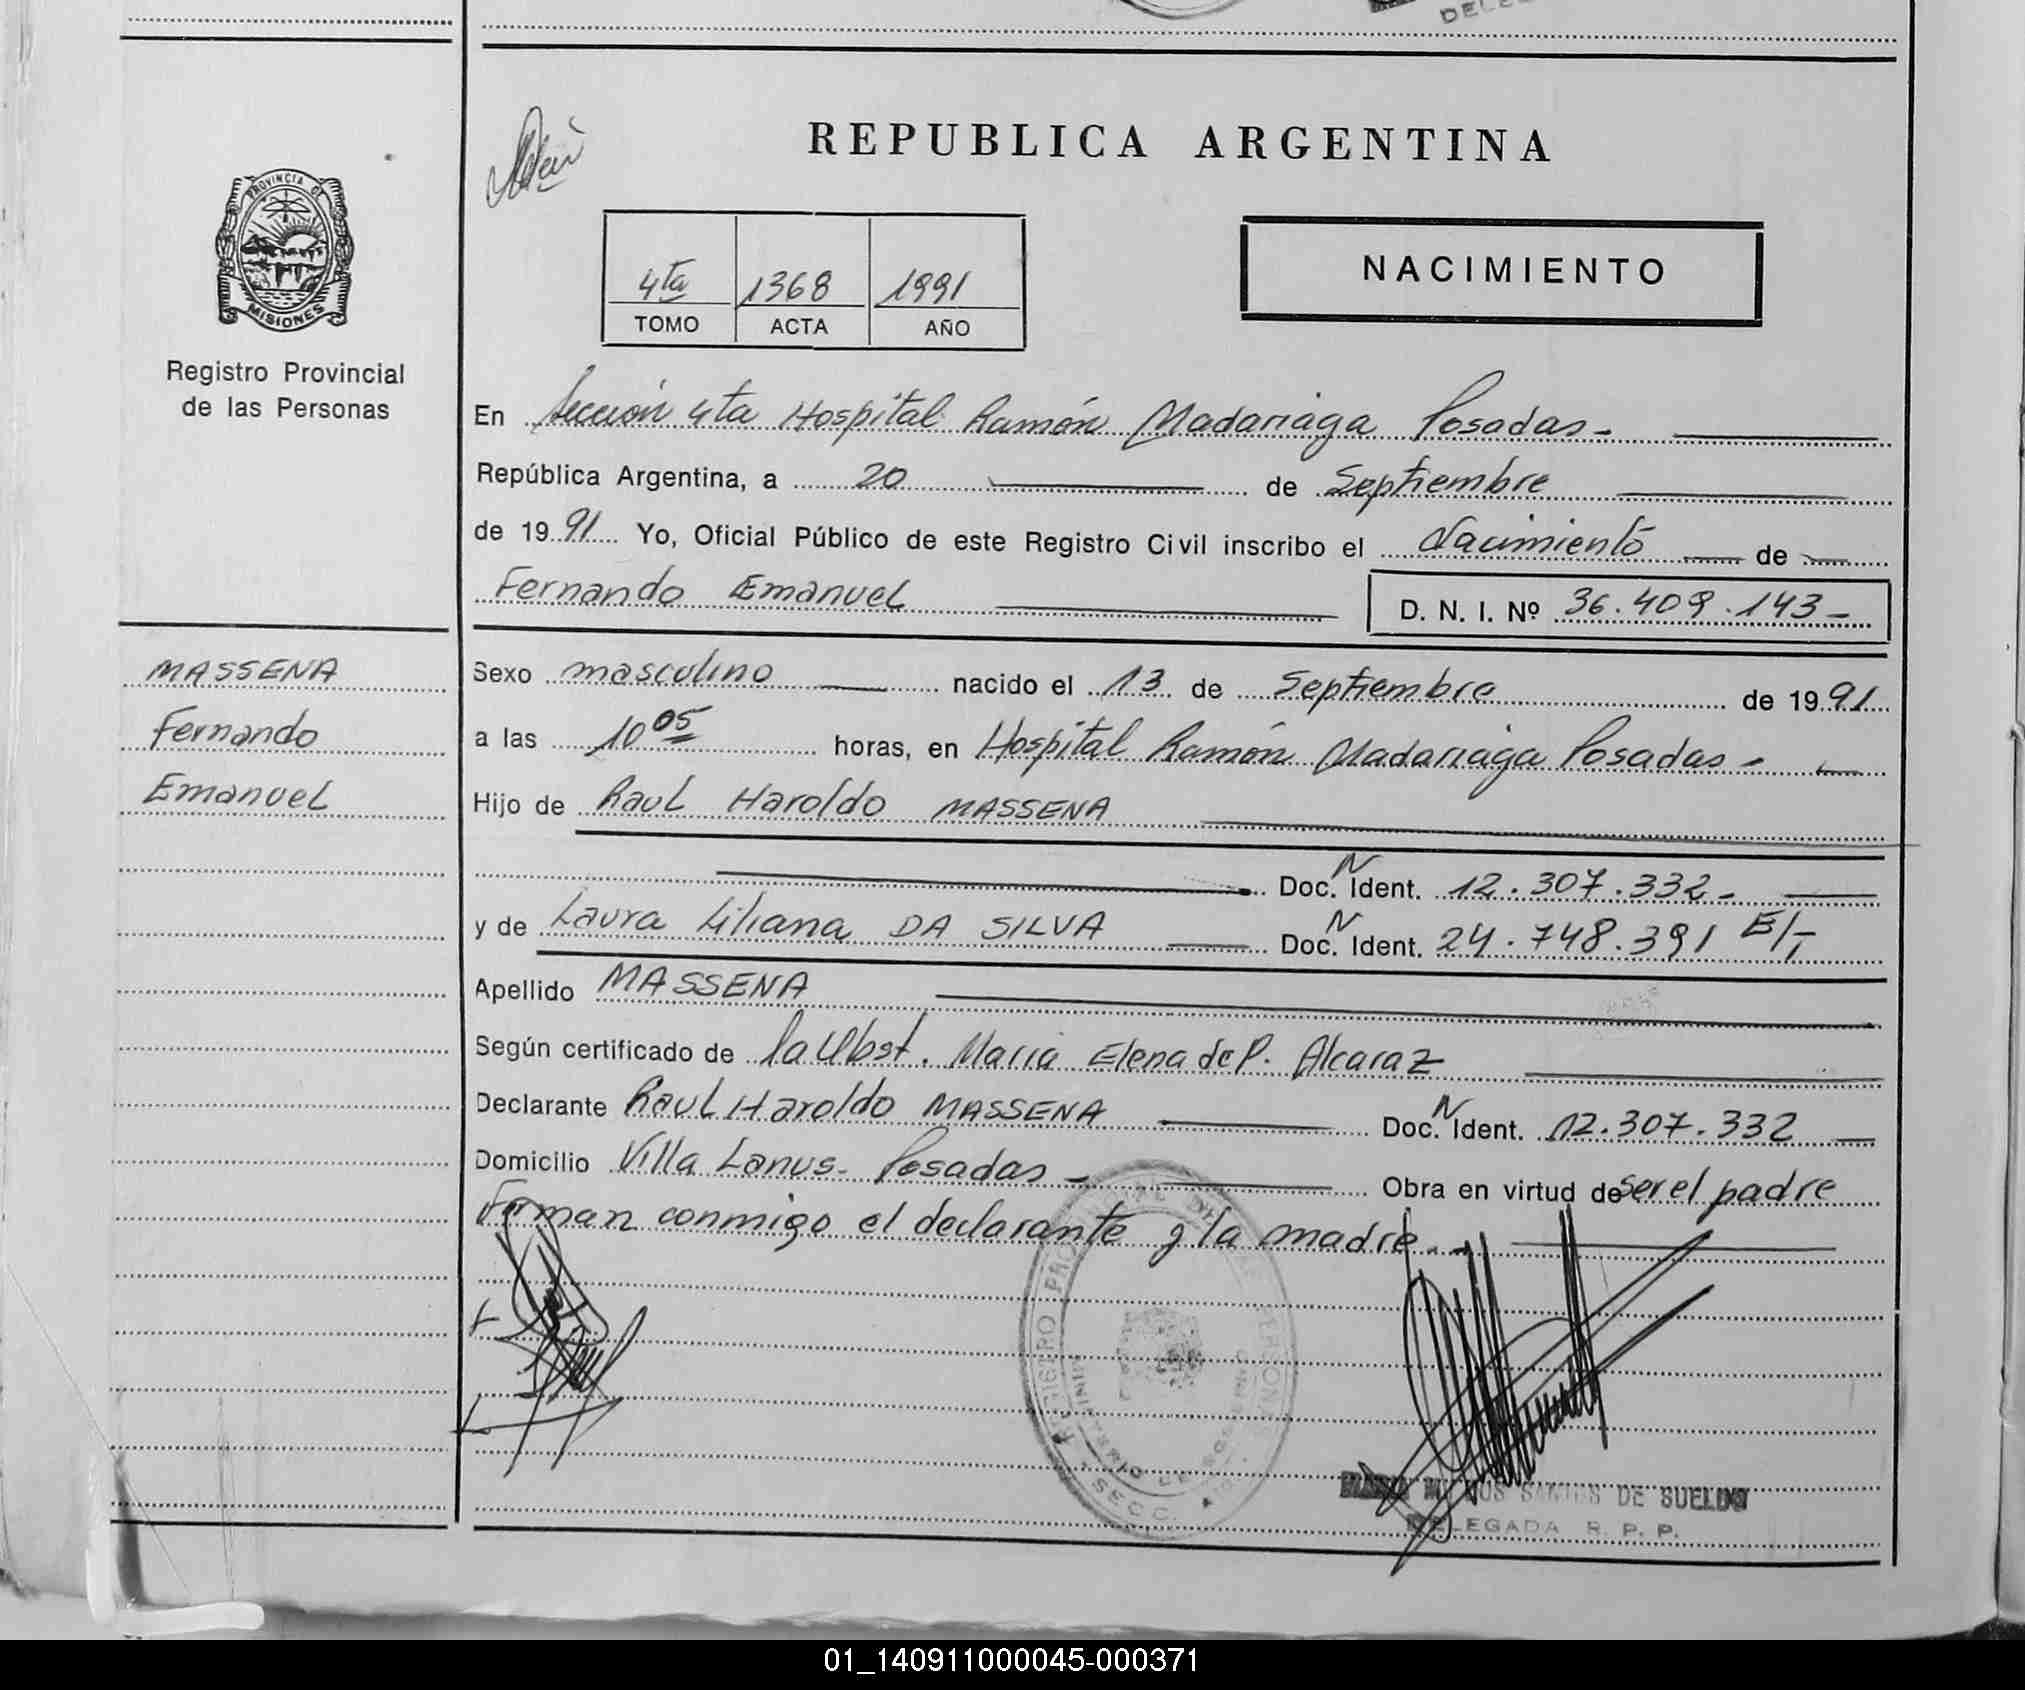 DELE
REPUBLICA ARGENTINA
PROVINCIA DE
MISIONES
Registro Provincial
de las Personas
4ta 1368 1991
TOMO ACTA AÑO
NACIMIENTO
En Sección 4ta Hospital Ramón Madariaga Posadas.
República Argentina, a 20 de Septiembre
de 1991 Yo, Oficial Público de este Registro Civil inscribo el Nacimiento de
Fernando Emanuel D. N. I. Nº 36.409.143-
MASSENA
Fernando
Emanuel
Sexo masculino nacido el 13 de Septiembre de 1991
a las 10 05 horas, en Hospital Ramón Madariaga Posadas -
Hijo de Raul Haroldo MASSENA
Doc. N Ident. 12.307.332-
y de Laura Liliana DA SILVA Doc. N Ident. 24.748.391 E/T
Apellido MASSENA
Según certificado de la Obst. Maria Elena de P. Alcaraz
Declarante Raul Haroldo MASSENA Doc. N Ident. 12.307.332
Domicilio Villa Lanus - Posadas - Obra en virtud de ser el padre
Firman conmigo el declarante y la madre.-
REGISTRO PROVINCIAL DE LAS PERSONAS
MINISTERIO DE GOBIERNO
SECC.
SANTOS DE SUELDO
DELEGADA R. P. P.
01_140911000045-000371